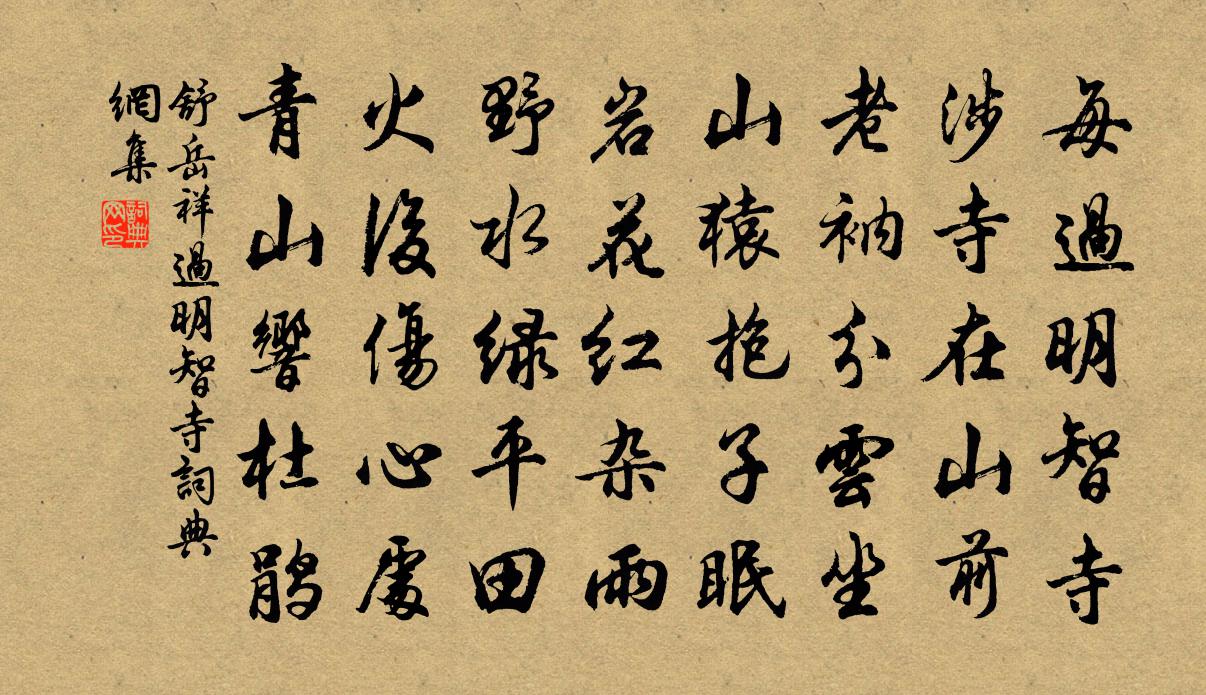 每過明智寺
涉寺在山前
老衲分雲坐
山猿抱子眠
岩花红杂雨
野水绿平田
火後傷心處
青山響杜鹃
舒岳祥過明智寺詞典
網集
詞典
网印